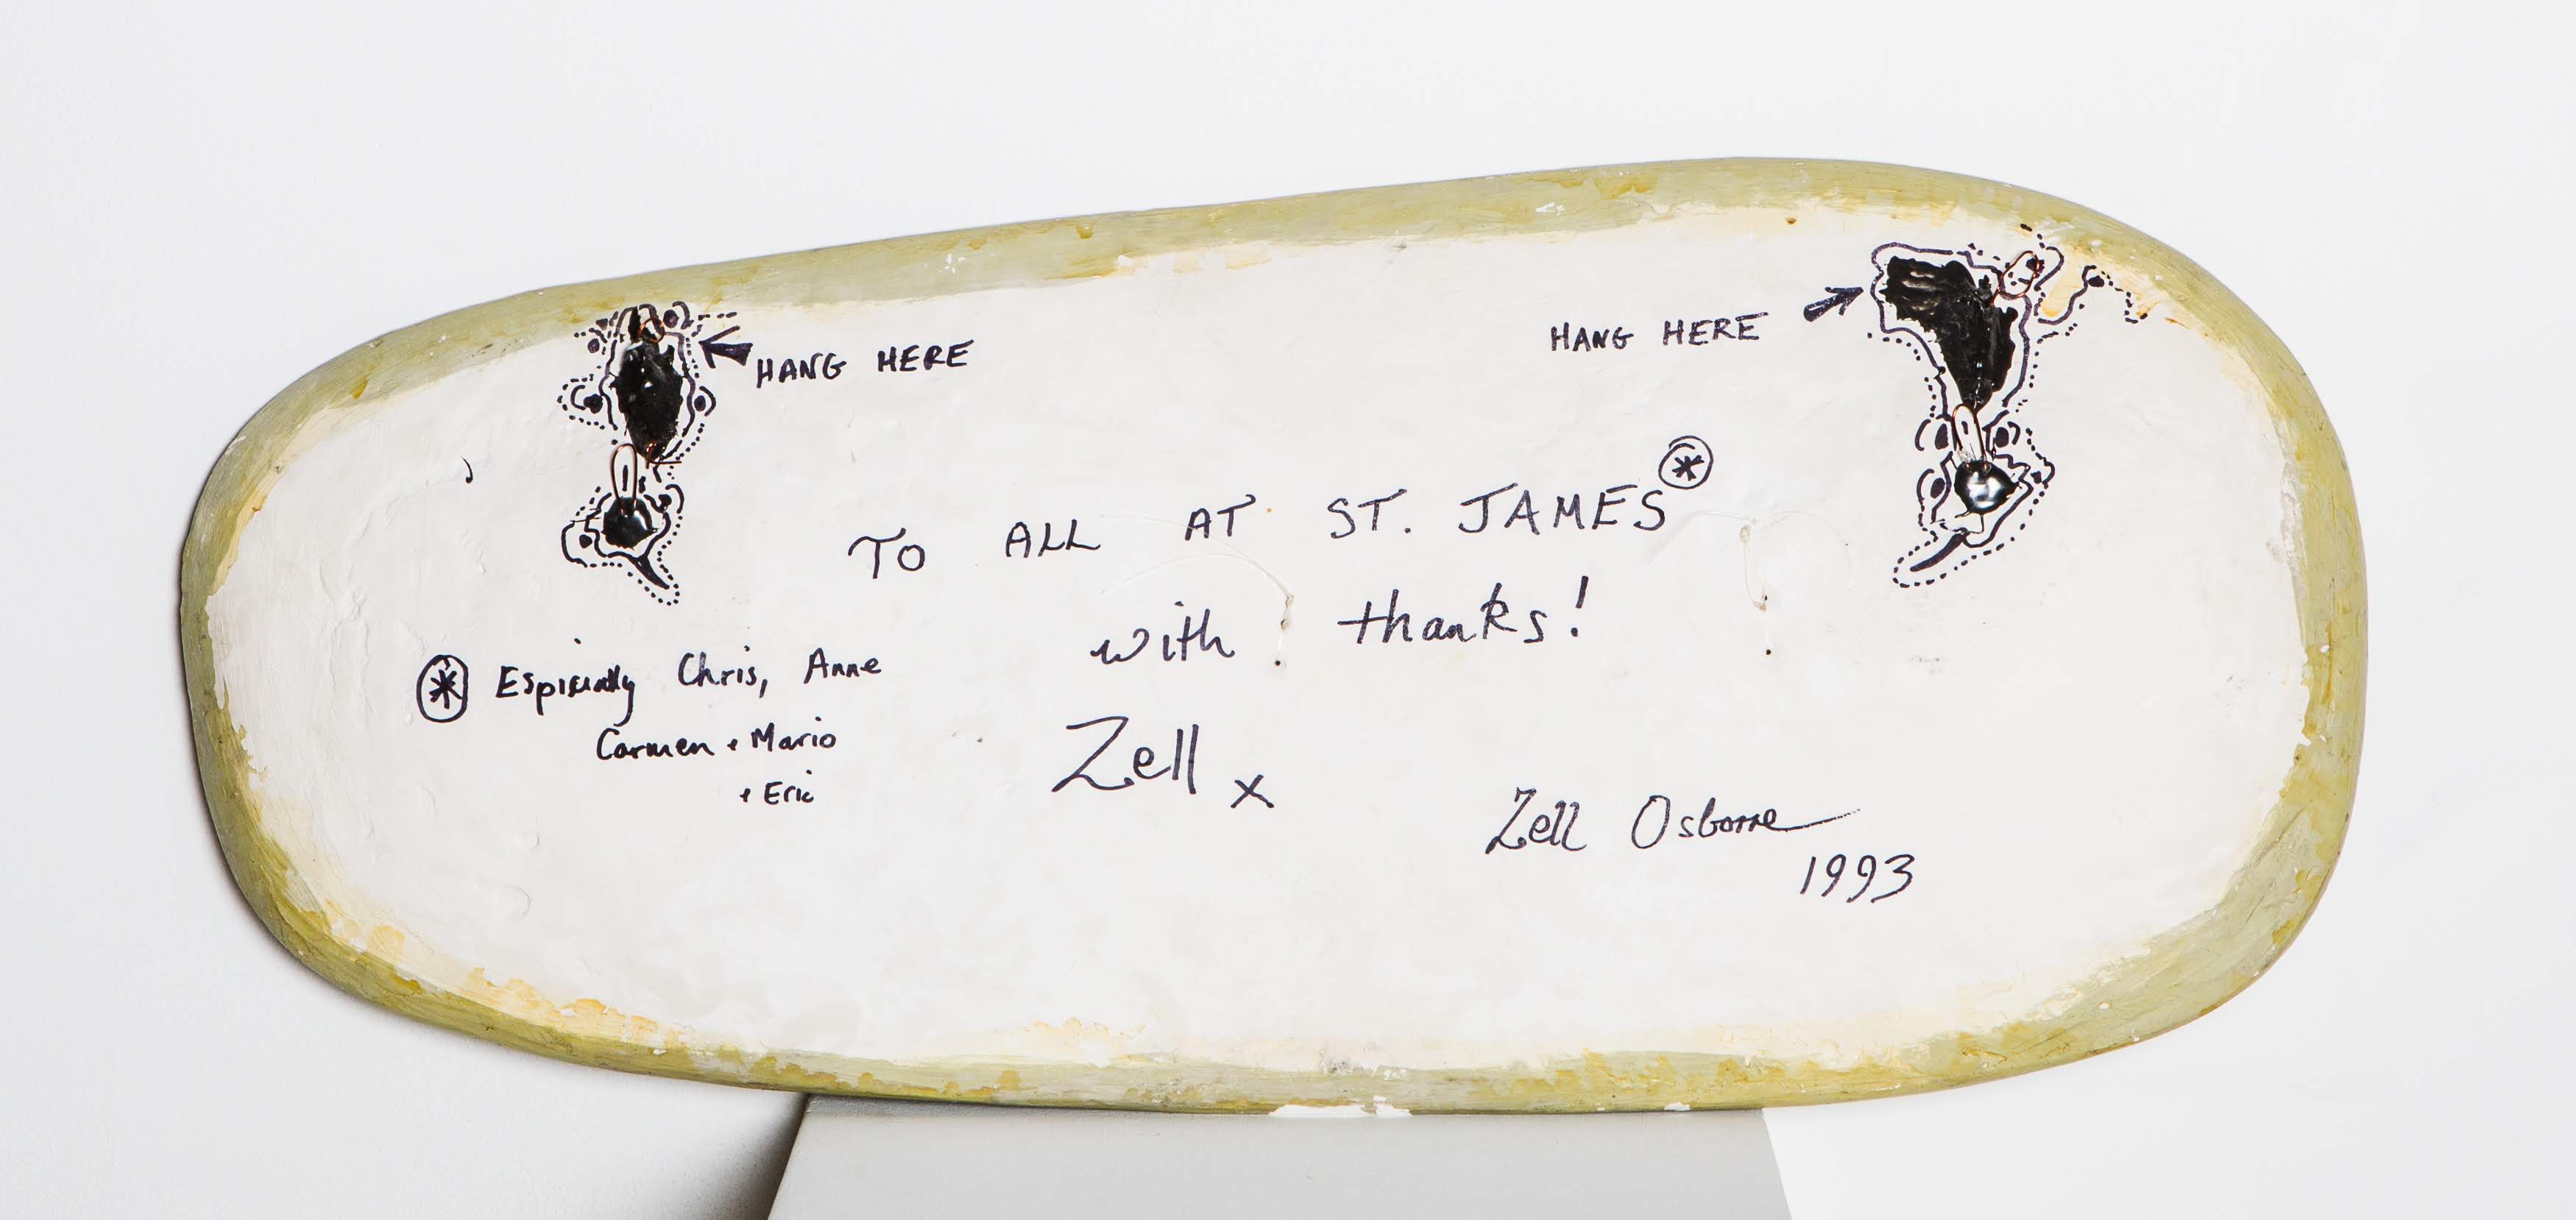 HANG HERE
HANG HERE
TO ALL AT ST. JAMES *
with thanks!
* Espicially Chris, Anne
Carmen + Mario
+ Eric
Zell x
Zell Osborne
1993